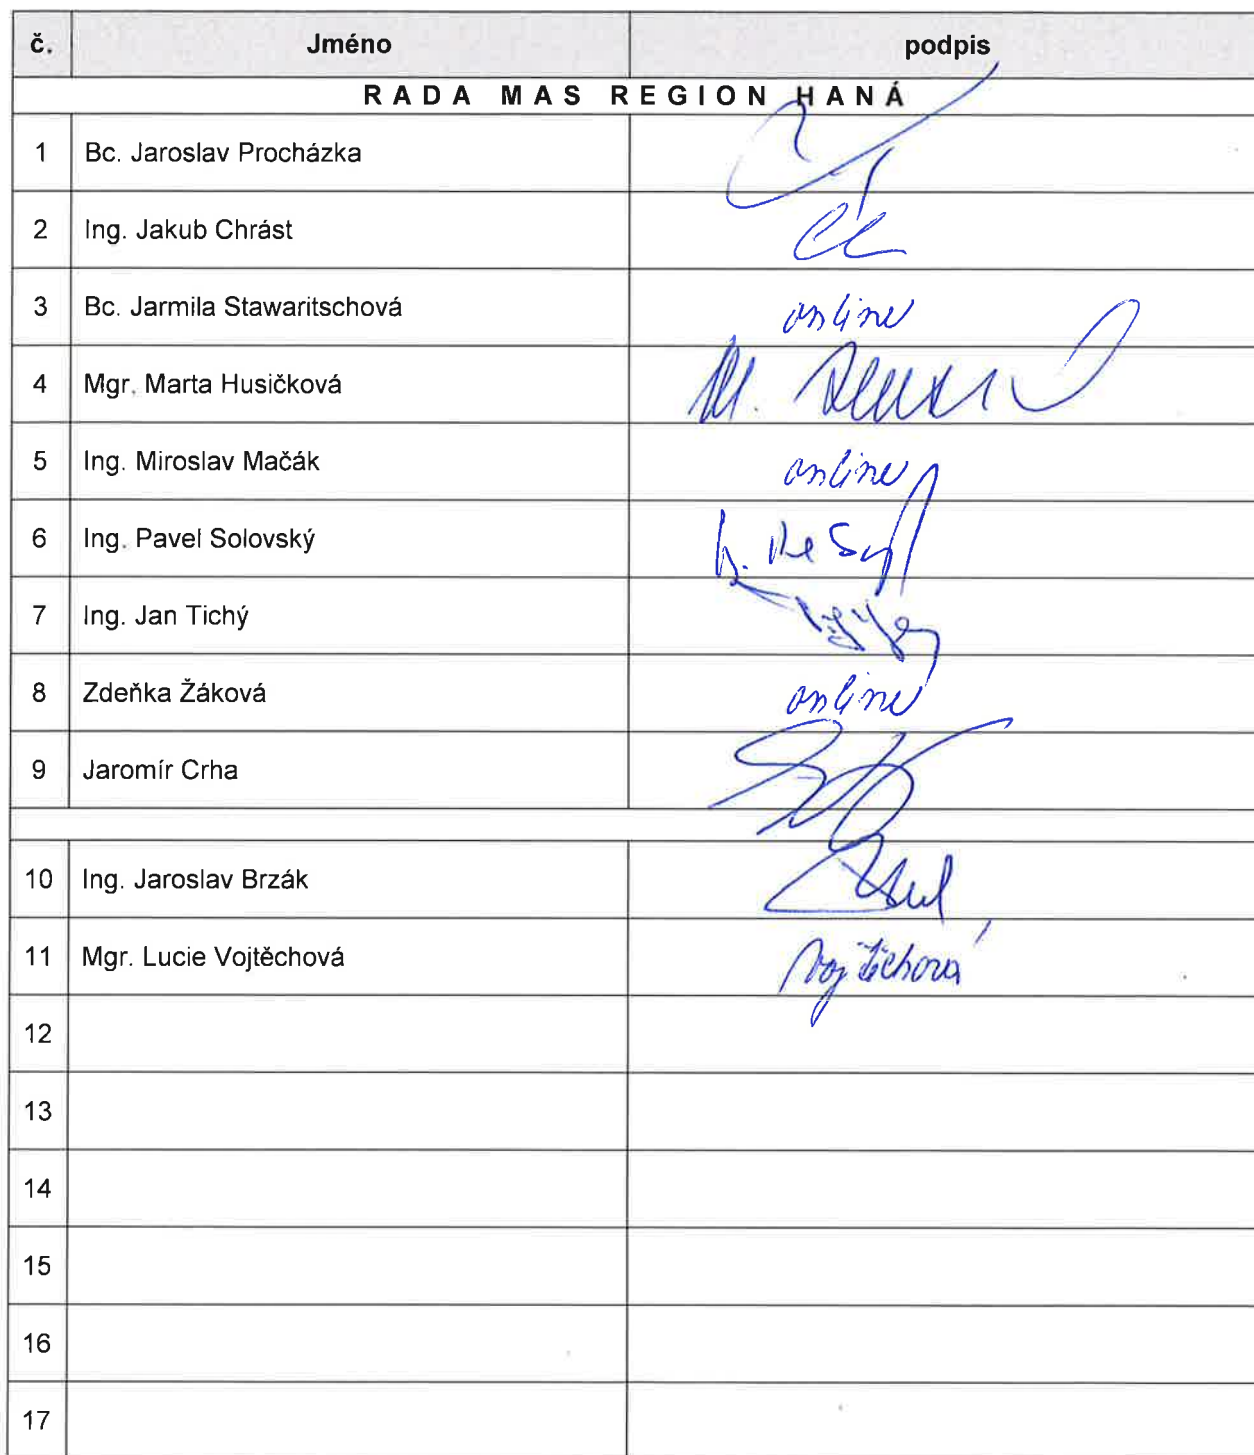 č. Jméno podpis
RADA MAS REGION HANÁ
1 Bc. Jaroslav Procházka
2 Ing. Jakub Chrást
3 Bc. Jarmila Stawaritschová online
4 Mgr. Marta Husičková M.
5 Ing. Miroslav Mačák online
6 Ing. Pavel Solovský
7 Ing. Jan Tichý
8 Zdeňka Žáková online
9 Jaromír Crha
10 Ing. Jaroslav Brzák
11 Mgr. Lucie Vojtěchová Vojtěchová
12
13
14
15
16
17